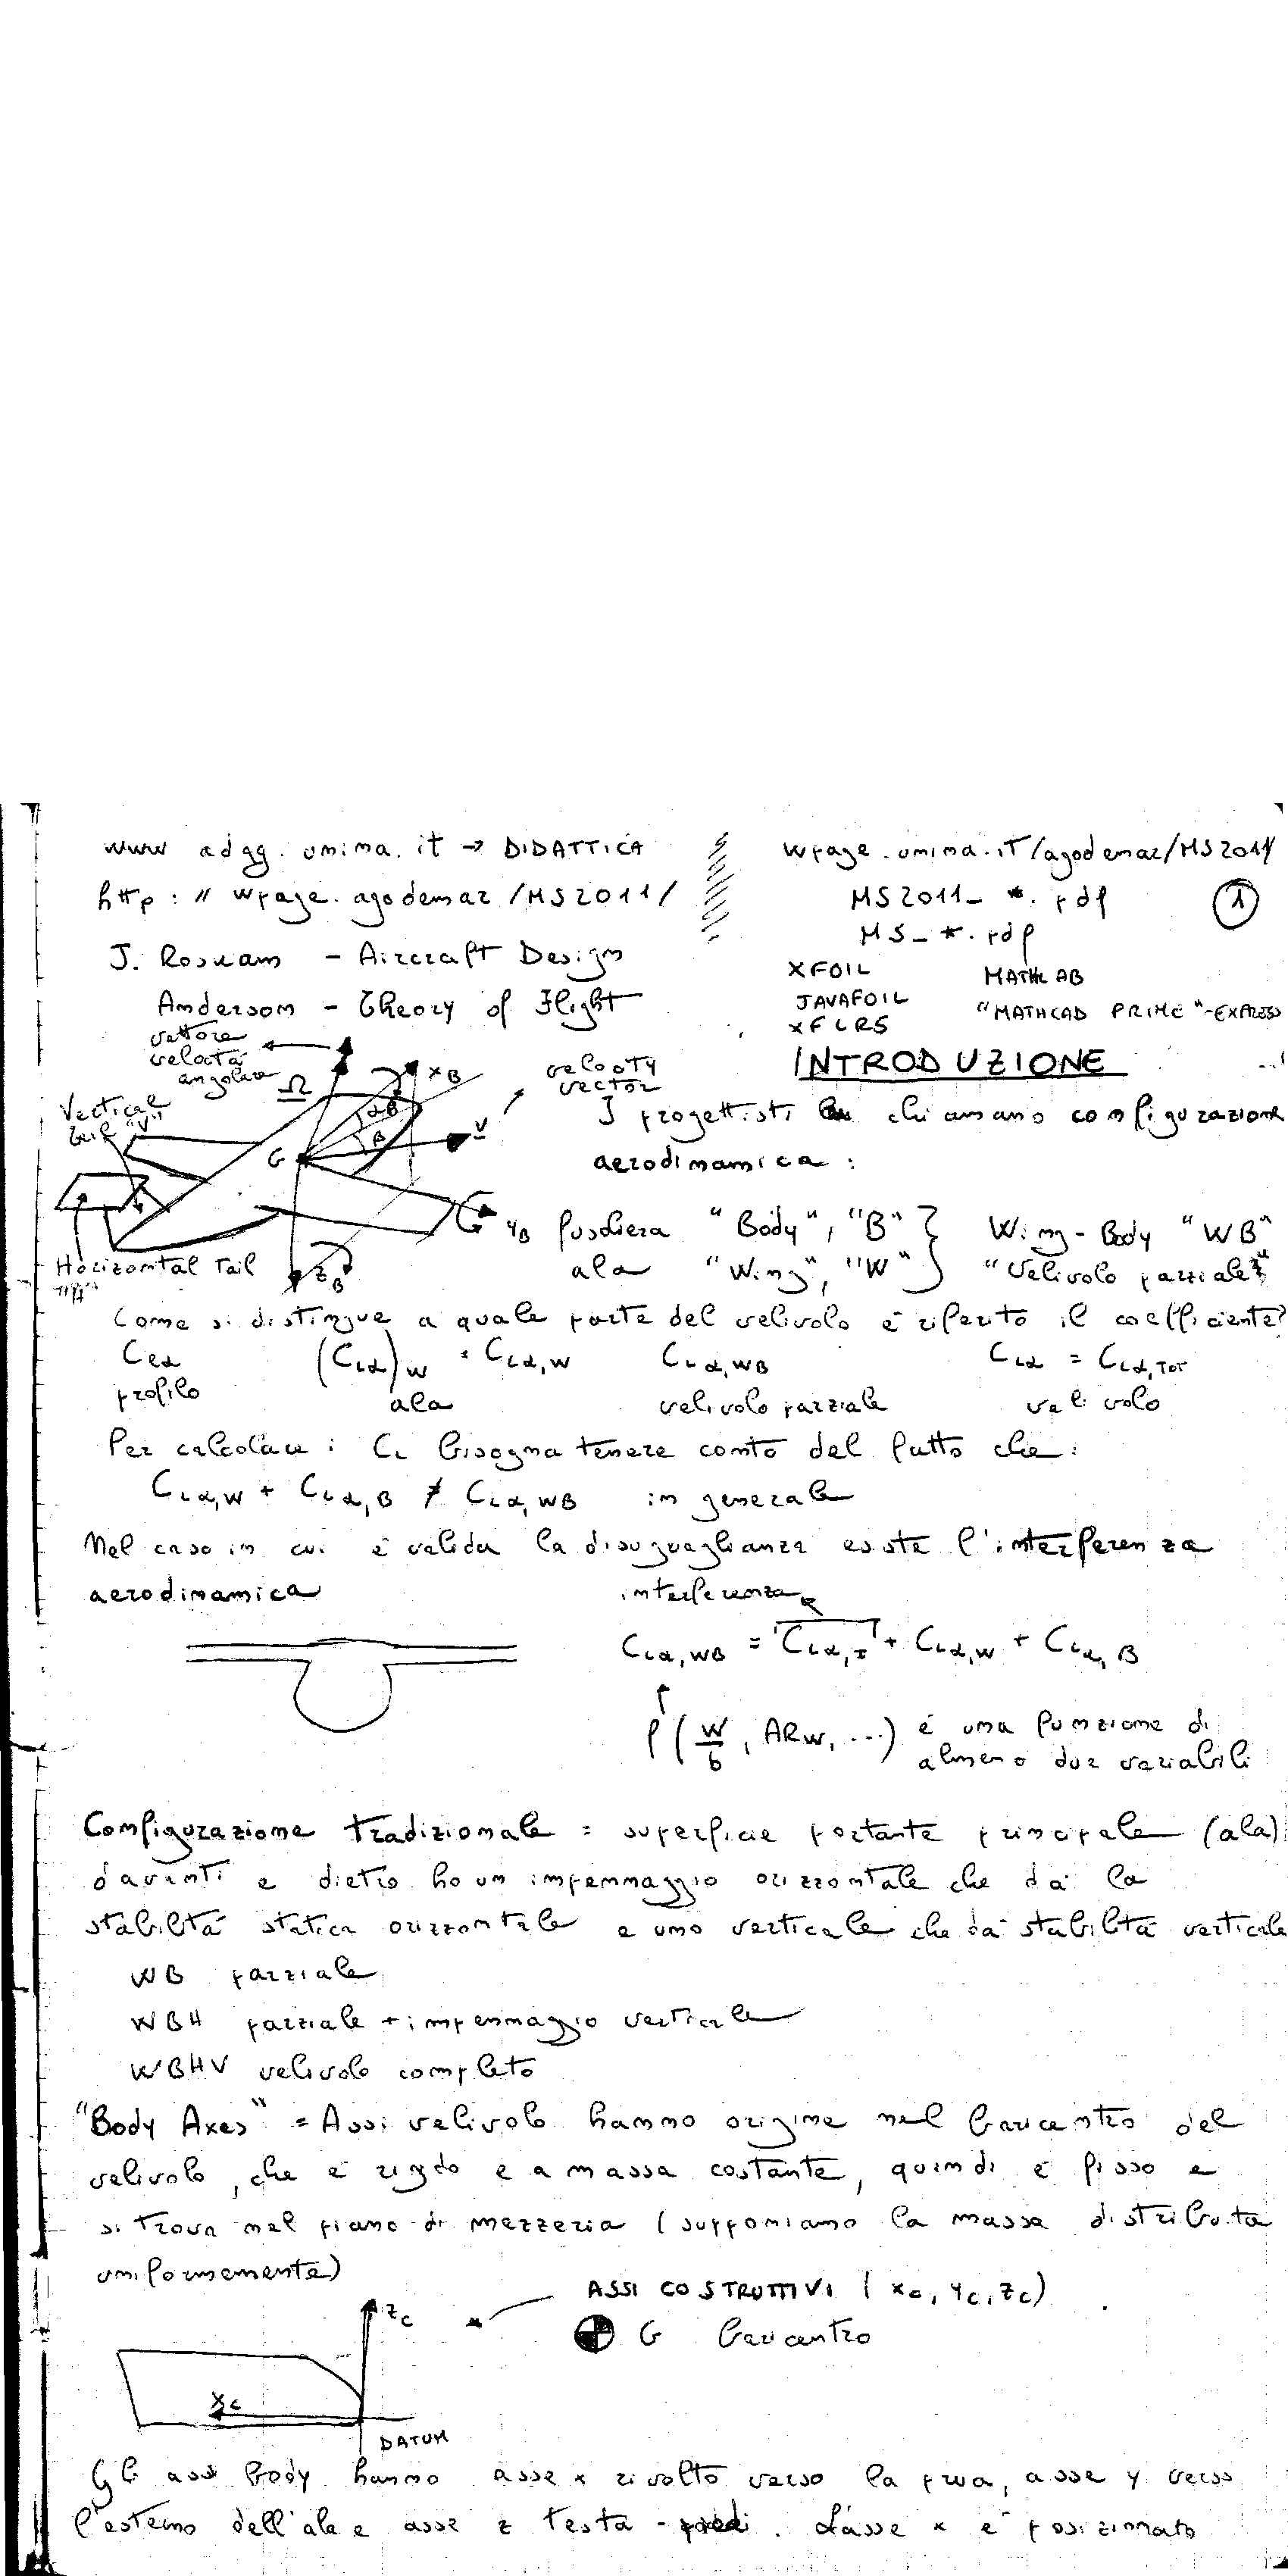 www adag.unina.it → DIDATTICA
http://wpage.agodemar/MS2011/
J. Roskam - Aircraft Design
Anderson - Theory of Flight
wpage.unina.iT/agodemar/MS2011
MS2011_*.pdf
①
MS_*.pdf
XFOIL
JAVAFOIL
XFLR5
MATHLAB
"MATHCAD PRIME"-EXPRESS
vettore
velocità
angolare
Ω
Vertical
tail "V"
G
xB
αB
β
V
velocity
vector
yB
zB
Horizontal Tail
"H"
INTRODUZIONE
I progettisti chiamano configurazione
aerodinamica:
fusoliera "Body", "B" } Wing-Body "WB"
ala "Wing", "W" } "Velivolo parziale"
Come si distingue a quale parte del velivolo è riferito il coefficiente?
Clα (CLα)W = CLα,W CLα,WB CLα = CLα,TOT
profilo ala velivolo parziale velivolo
Per calcolare i CL bisogna tenere conto del fatto che:
CLα,W + CLα,B ≠ CLα,WB in generale
Nel caso in cui è valida la disuguaglianza esiste l'interferenza
aerodinamica
interferenza
CLα,WB = CLα,I + CLα,W + CLα,B
f(W/b, ARW, ...) è una funzione di
almeno due variabili
Configurazione tradizionale = superficie portante principale (ala)
davanti e dietro ho un impennaggio orizzontale che dà la
stabilità statica orizzontale e uno verticale che dà stabilità verticale
WB parziale
WBH parziale + impennaggio verticale
WBHV velivolo completo
"Body Axes" = Assi velivolo hanno origine nel baricentro del
velivolo, che è rigido e a massa costante, quindi è fisso e
si trova nel piano di mezzeria (supponiamo la massa distribuita
uniformemente)
ASSI COSTRUTTIVI (xc, yc, zc)
G baricentro
zc
xc
DATUM
Gli assi body hanno asse x rivolto verso la prua, asse y verso
l'esterno dell'ala e asse z testa-piedi. L'asse x è posizionato